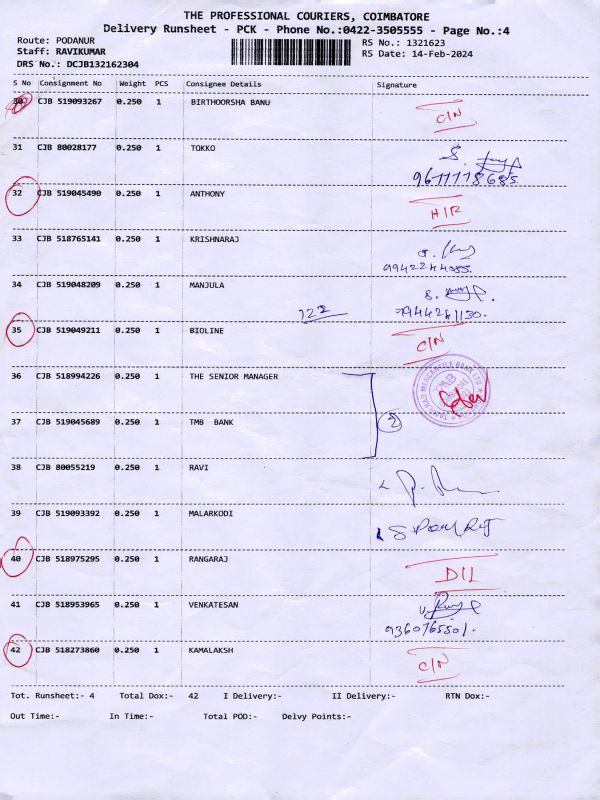 THE PROFESSIONAL COURIERS, COIMBATORE
Delivery Runsheet - PCK - Phone No.:0422-3505555 - Page No.:4
Route: PODANUR
RS No.: 1321623
Staff: RAVIKUMAR
RS Date: 14-Feb-2024
DRS No.: DCJB132162304
S No Consignment No Weight PCS Consignee Details Signature
30 CJB 519093267 0.250 1 BIRTHOORSHA BANU C/N
31 CJB 80028177 0.250 1 TOKKO
32 CJB 519045490 0.250 1 ANTHONY H/R
33 CJB 518765141 0.250 1 KRISHNARAJ
34 CJB 519048209 0.250 1 MANJULA
122
35 CJB 519049211 0.250 1 BIOLINE C/N
36 CJB 518994226 0.250 1 THE SENIOR MANAGER
37 CJB 519045689 0.250 1 TMB BANK 2
38 CJB 80055219 0.250 1 RAVI
39 CJB 519093392 0.250 1 MALARKODI
40 CJB 518975295 0.250 1 RANGARAJ D/L
41 CJB 518953965 0.250 1 VENKATESAN
9360765501.
42 CJB 518273860 0.250 1 KAMALAKSH C/N
Tot. Runsheet:- 4 Total Dox:- 42 I Delivery:- II Delivery:- RTN Dox:-
Out Time:- In Time:- Total POD:- Delvy Points:-